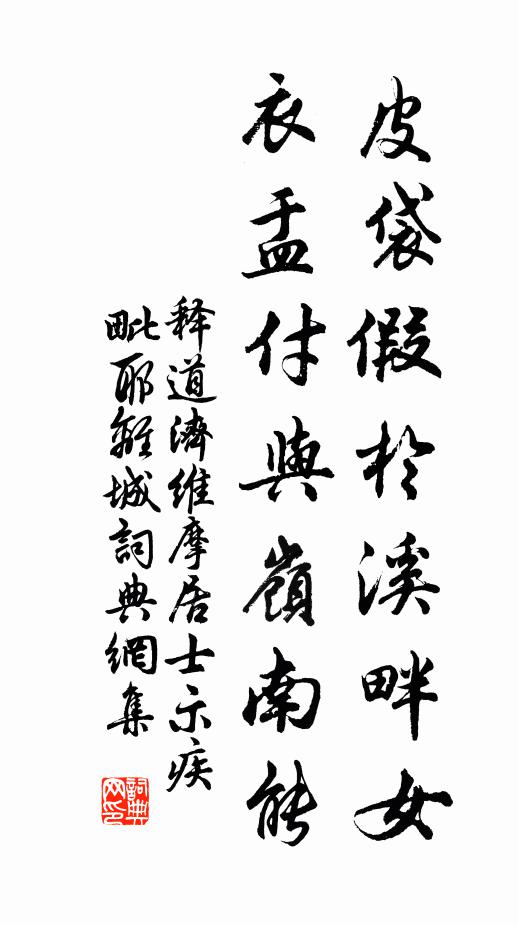 皮袋假於溪畔女
衣盂付與嶺南能
释道濟維摩居士示疾
毗耶離城詞典網集
詞典
网印